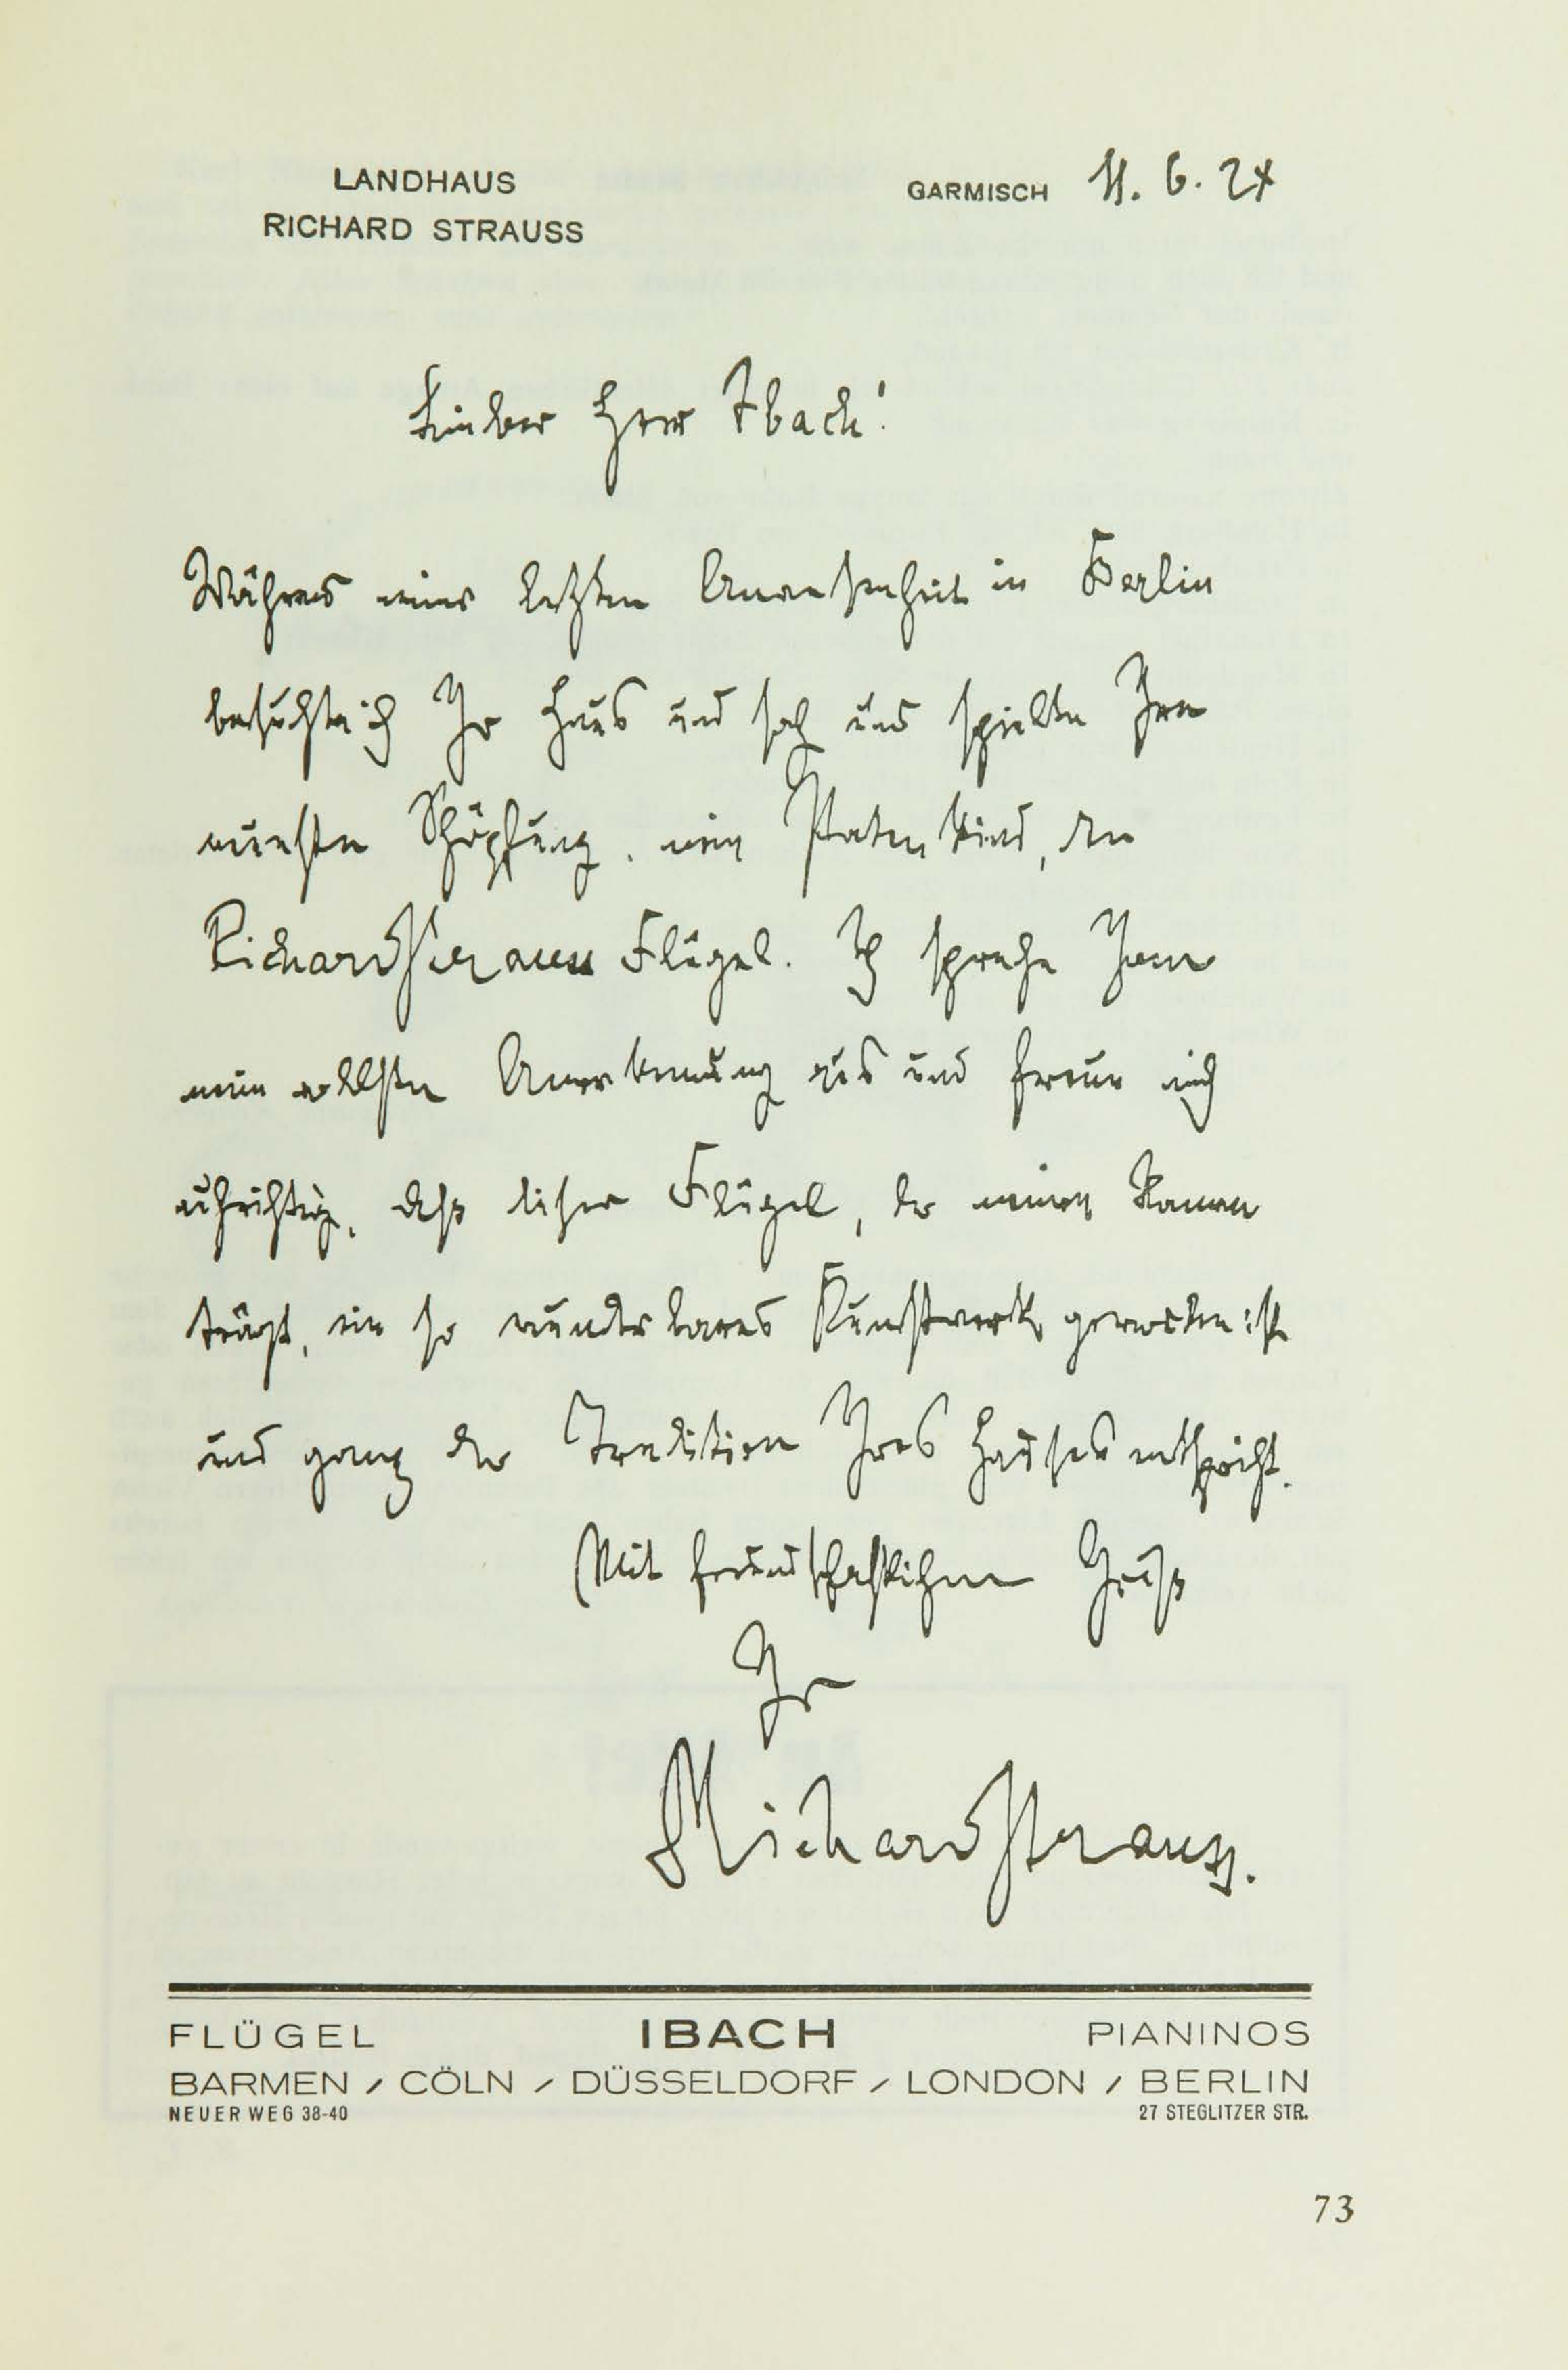 LANDHAUS
RICHARD STRAUSS
GARMISCH 11. 6. 24
Lieber Herr Ibach!
Während meiner letzten Anwesenheit in Berlin
besuchte ich Ihr Haus und sah und spielte Ihre
neueste Schöpfung, mein Patenkind, den
Richard Strauss Flügel. Ich spreche Ihnen
meine vollste Anerkennung aus und freue mich
aufrichtig, daß dieser Flügel, der meinen Namen
trägt, ein so wunderbares Kunstwerk geworden ist
und ganz der Tradition Ihres Hauses entspricht.
Mit freundschaftlichem Gruß
Ihr
Richard Strauss.
FLÜGEL IBACH PIANINOS
BARMEN / CÖLN / DÜSSELDORF / LONDON / BERLIN
NEUER WEG 38-40 27 STEGLITZER STR.
73